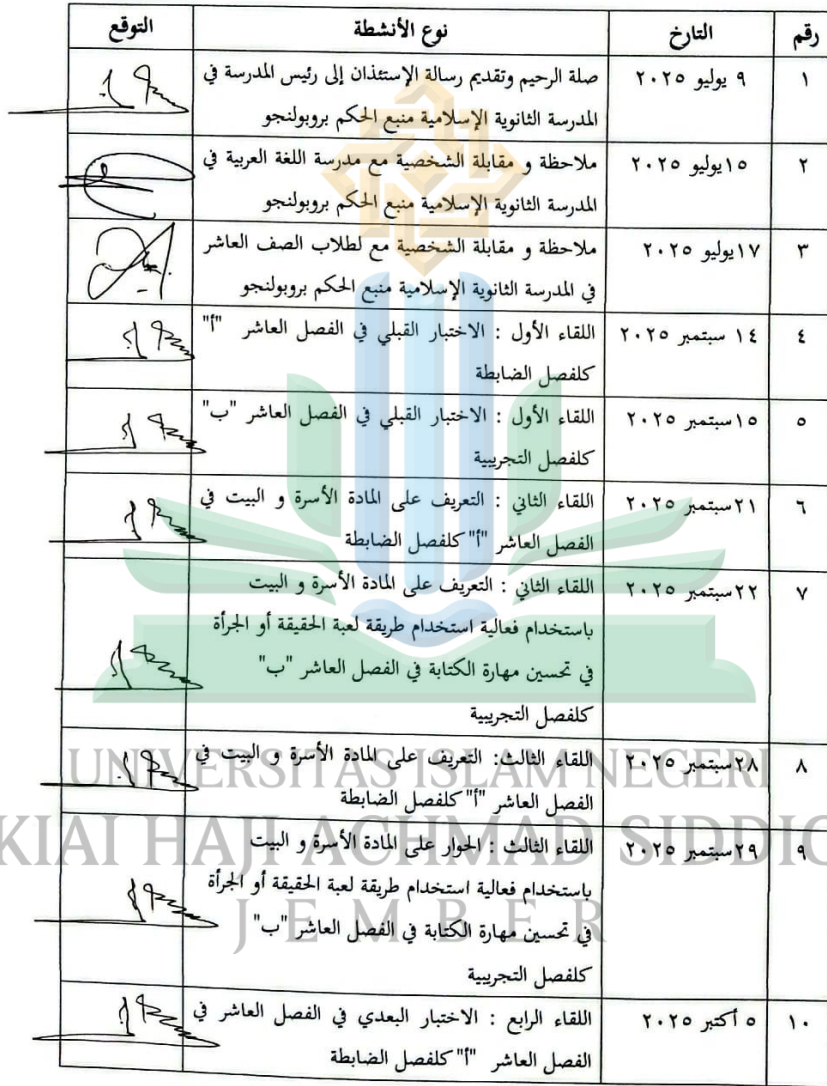 رقم التارخ نوع الأنشطة التوقع
١ ٩ يوليو ٢٠٢٥ صلة الرحيم وتقديم رسالة الإستئذان إلى رئيس المدرسة في
المدرسة الثانوية الإسلامية منبع الحكم بروبولنجو
٢ ١٥يوليو ٢٠٢٥ ملاحظة و مقابلة الشخصية مع مدرسة اللغة العربية في
المدرسة الثانوية الإسلامية منبع الحكم بروبولنجو
٣ ١٧يوليو ٢٠٢٥ ملاحظة و مقابلة الشخصية مع لطلاب الصف العاشر
في المدرسة الثانوية الإسلامية منبع الحكم بروبولنجو
٤ ١٤ سبتمبر ٢٠٢٥ اللقاء الأول : الاختبار القبلي في الفصل العاشر "أ"
كلفصل الضابطة
٥ ١٥سبتمبر ٢٠٢٥ اللقاء الأول : الاختبار القبلي في الفصل العاشر "ب"
كلفصل التجريبية
٦ ٢١سبتمبر ٢٠٢٥ اللقاء الثاني : التعريف على المادة الأسرة و البيت في
الفصل العاشر "أ" كلفصل الضابطة
٧ ٢٢سبتمبر ٢٠٢٥ اللقاء الثاني : التعريف على المادة الأسرة و البيت
باستخدام فعالية استخدام طريقة لعبة الحقيقة أو الجرأة
في تحسين مهارة الكتابة في الفصل العاشر "ب"
كلفصل التجريبية
٨ ٢٨سبتمبر ٢٠٢٥ اللقاء الثالث: التعريف على المادة الأسرة و البيت في
الفصل العاشر "أ" كلفصل الضابطة
٩ ٢٩سبتمبر ٢٠٢٥ اللقاء الثالث : الحوار على المادة الأسرة و البيت
باستخدام فعالية استخدام طريقة لعبة الحقيقة أو الجرأة
في تحسين مهارة الكتابة في الفصل العاشر "ب"
كلفصل التجريبية
١٠ ٥ أكتبر ٢٠٢٥ اللقاء الرابع : الاختبار البعدي في الفصل العاشر في
الفصل العاشر "أ" كلفصل الضابطة
UNIVERSITAS ISLAM NEGERI
KIAI HAJI ACHMAD SIDDIQ
JEMBER